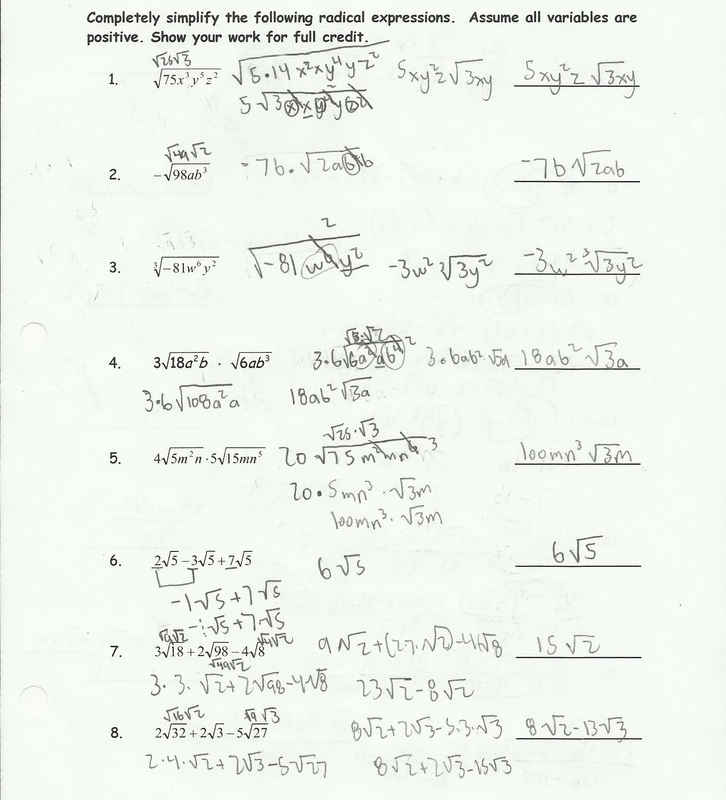 Completely simplify the following radical expressions. Assume all variables are
positive. Show your work for full credit.
√25√3
1. √75x³y⁵z² √5·14x²xy⁴yz² 5xy²z√3xy 5xy²z√3xy
5√3x²xy⁴yz²
√49√2
2. -√98ab³ -7b·√2ab²b -7b√2ab
2
3. ∛-81w⁶y² √-81w⁶y² -3w²∛3y² -3w²∛3y²
√3·√2
4. 3√18a²b · √6ab³ 3·6√6a²ab⁴ 2 3·6ab²·√3a 18ab²√3a
3·6√108a²a 18ab²√3a
√25·√3
5. 4√5m²n·5√15mn⁵ 20√75m²mn⁶ 3 100mn³√3m
20·5mn³·√3m
100mn³·√3m
6. 2√5-3√5+7√5 6√5 6√5
-1√5+7√5
-1√5+7√5
√9√2 √4√2
7. 3√18+2√98-4√8 9√2+(27·√2)-4√8 15√2
√49√2
3·3·√2+2√98-4√8 23√2-8√2
√16√2 √9√3
8. 2√32+2√3-5√27 8√2+2√3-5·3·√3 8√2-13√3
2·4·√2+2√3-5√27 8√2+2√3-15√3